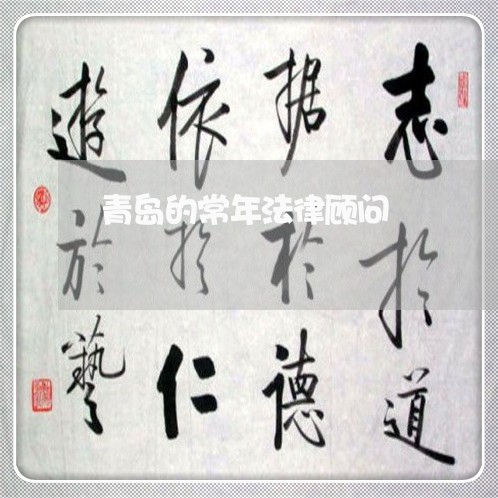 志於道
据於德
依於仁
遊於藝
青岛的常年法律顾问